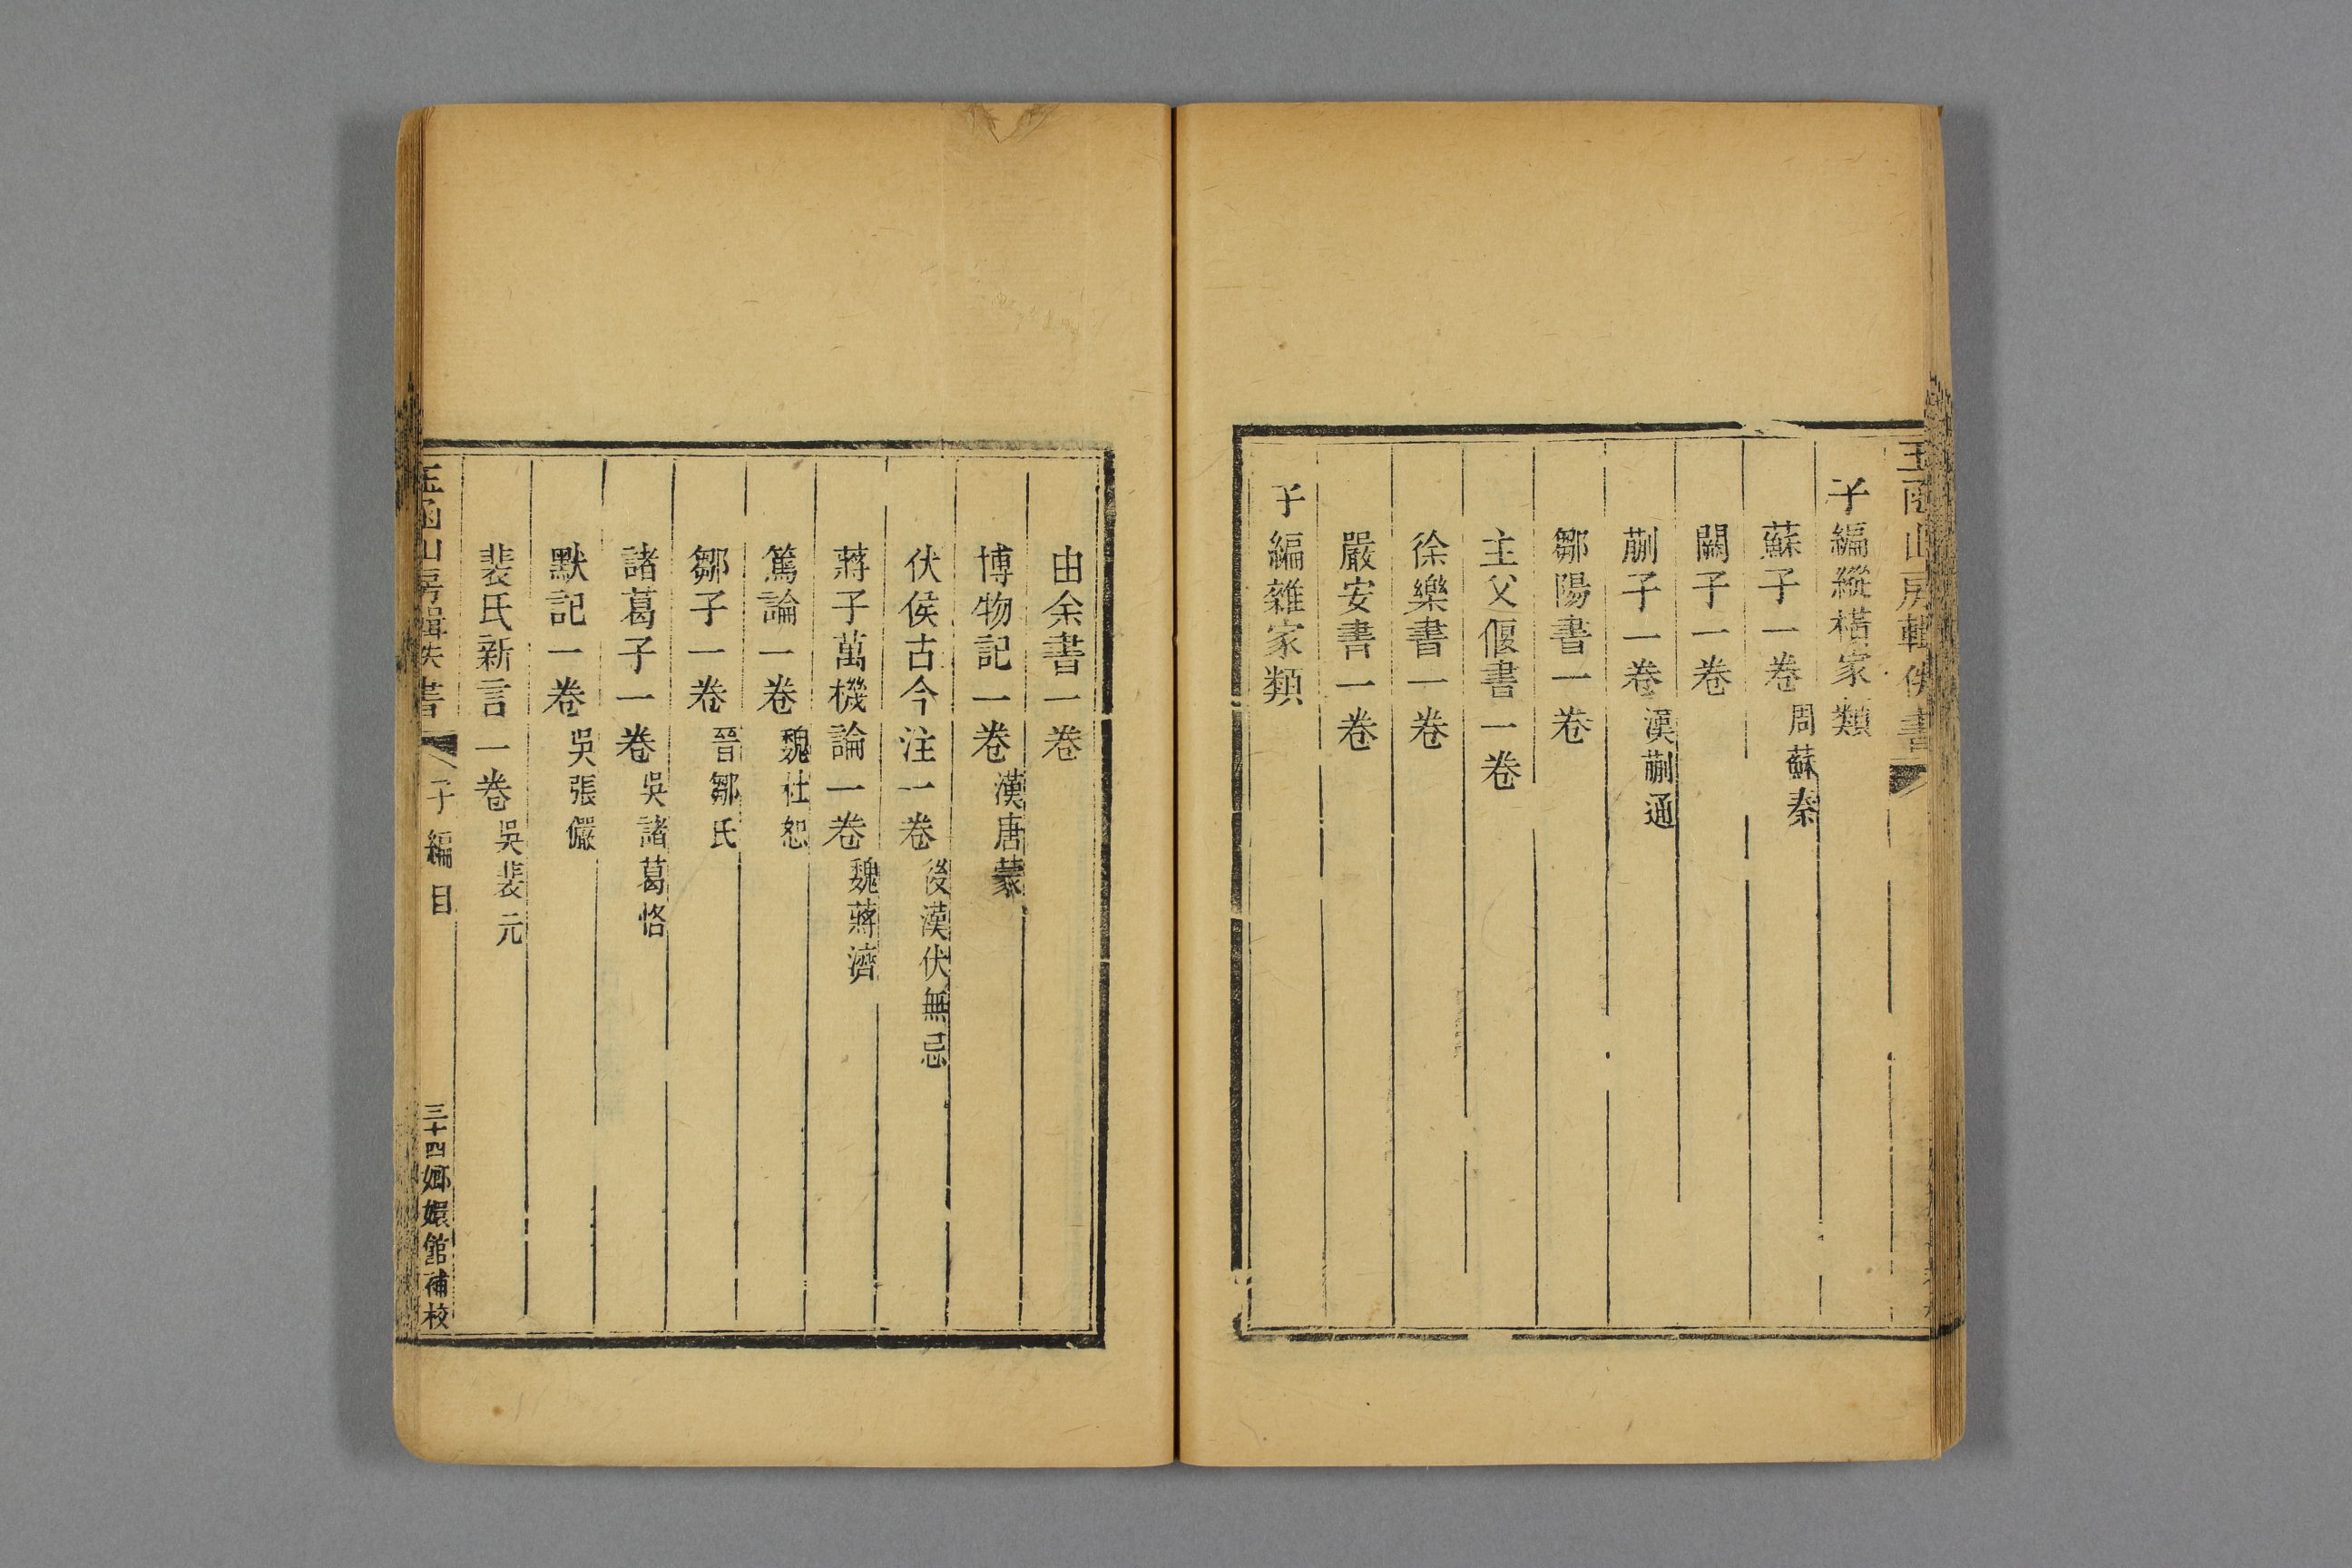 玉函山房輯佚書
子編縱橫家類
蘇子一卷周蘇秦
闕子一卷
蒯子一卷漢蒯通
鄒陽書一卷
主父偃書一卷
徐樂書一卷
嚴安書一卷
子編雜家類
由余書一卷
博物記一卷漢唐蒙
伏侯古今注一卷後漢伏無忌
蔣子萬機論一卷魏蔣濟
篤論一卷魏杜恕
鄒子一卷晉鄒氏
諸葛子一卷吳諸葛恪
默記一卷吳張儼
裴氏新言一卷吳裴元
玉函山房輯佚書 子編目 三十四 嫏嬛館補校